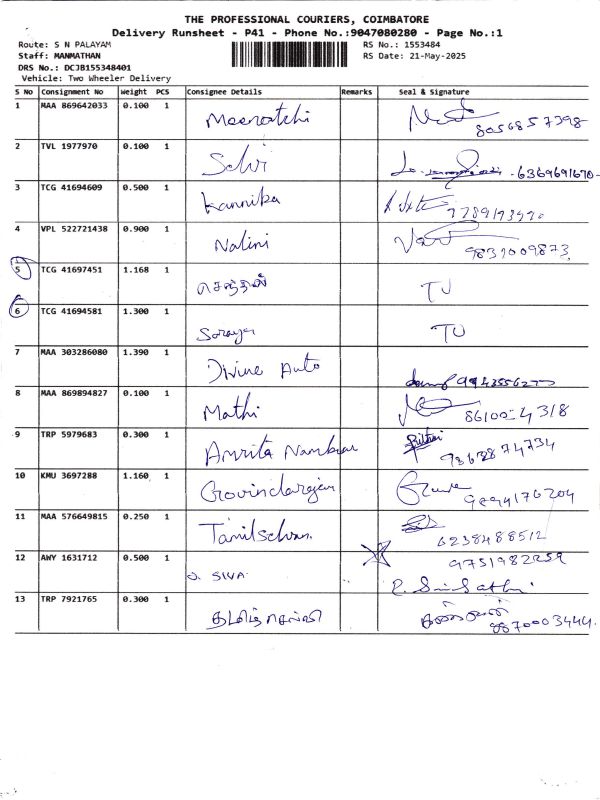 THE PROFESSIONAL COURIERS, COIMBATORE
Delivery Runsheet - P41 - Phone No.:9047080280 - Page No.:1
Route: S N PALAYAM
RS No.: 1553484
Staff: MANMATHAN
RS Date: 21-May-2025
DRS No.: DCJB155348401
Vehicle: Two Wheeler Delivery
S No Consignment No Weight PCS Consignee Details Remarks Seal & Signature
1 MAA 869642033 0.100 1 Meenatchi 8056857398
2 TVL 1977970 0.100 1 Selvi - 6369691670
3 TCG 41694609 0.500 1 Kannika
4 VPL 522721438 0.900 1 Nalini 9837009873
5 TCG 41697451 1.168 1 செந்தில் TU
6 TCG 41694581 1.300 1 Soraya TU
7 MAA 303286080 1.390 1 Divine Auto
8 MAA 869894827 0.100 1 Mathi
9 TRP 5979683 0.300 1 Amrita Nambiar
10 KMU 3697288 1.160 1 Govindarajan 9894176204
11 MAA 576649815 0.250 1 Tamilselvan 6238488512
12 AWY 1631712 0.500 1 J. SIVA 9751982259
13 TRP 7921765 0.300 1 தமிழ்செல்வி 9870003444